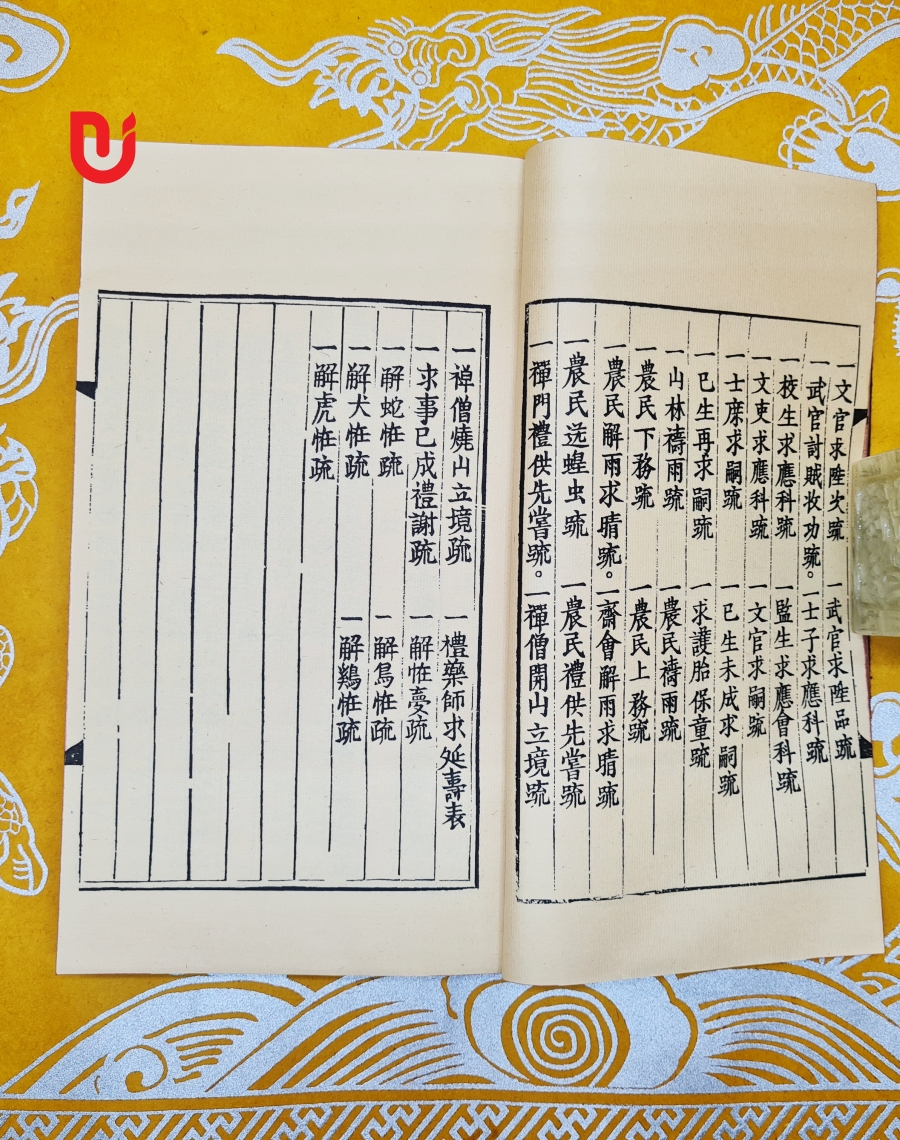 一文官求陞次䟽 一武官求陞品䟽
一武官討賊收功䟽。一士子求應科䟽
一校生求應科䟽 一監生求應會科䟽
一文吏求應科䟽 一文官求嗣䟽
一士庶求嗣䟽 一已生未成求嗣䟽
一已生再求嗣䟽 一求護胎保童䟽
一山林禱雨䟽 一農民禱雨䟽
一農民下務䟽 一農民上務䟽
一農民解雨求晴䟽。一齋會解雨求晴䟽
一農民送蝗虫䟽 一農民禮供先嘗䟽
一禪門禮供先嘗䟽。一禪僧開山立境䟽
一禅僧燒山立境疏 一禮藥師求延壽表
一求事已成禮謝疏 一解恠夢疏
一解蛇恠疏 一解鳥恠疏
一解犬恠疏 一解鷄恠疏
一解虎恠疏